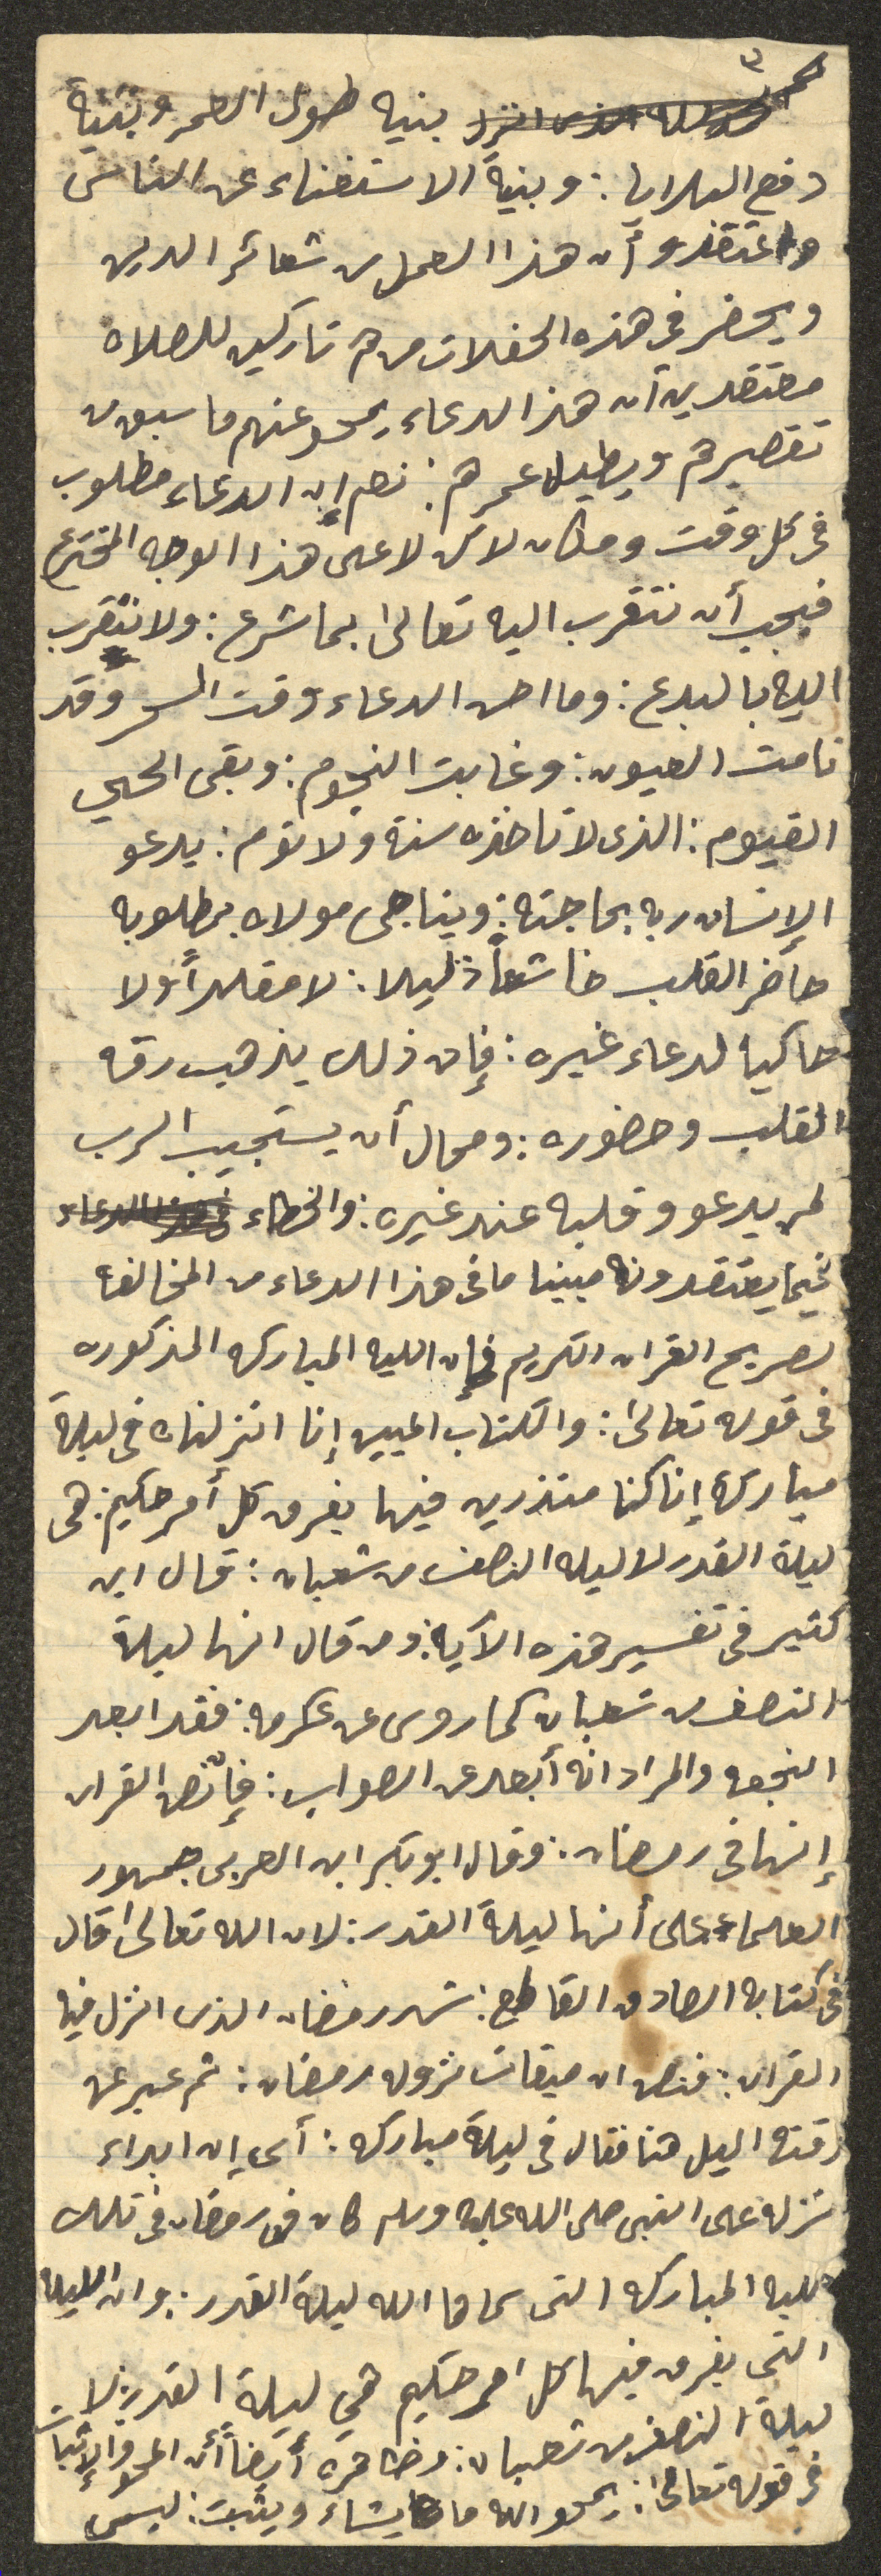 ٣
الحمد لله الذى انزل بنيه طول العمر وبنية
دفع البلايا: وبنية الاستغناء عن الناس
واعتقدو أن هذا العمل من شعائر الدين
ويحضر فى هذه الحفلات من هم تاركين للصلاه
معتقدين أن هذا الدعاء يمحو عنهم ما سبق من
تقصيرهم ويطيل عمرهم: نعم إن الدعاء مطلوب
فى كل وقت ومكان لاكن لا على هذا الوجه المخترع
فيجب أن نتقرب اليه تعالى بما شرع: ولا نتقرب
اليه بالبدع: وما احسن الدعاء وقت السحر وقد
نامت العيون: وغابت النجوم: وبقى الحي
القيوم: الذى لا تاخذه سنة ولا نوم: يدعو
الإنسان ربه بحاجته: ويناجى مولاه بمطلوبه
حاضر القلب خاشعاً ذليلا: لا مقلداً ولا
حاكيا لدعاء غيره: فإن ذلك يذهب رقه
القلب وحضوره: ومحال أن يستجيب الرب
لمن يدعو وقلبه عند غيره: والخطاء فى هذا الدعاء
فيما يعتقدونه مبينا ما فى هذا الدعاء من المخالفه
لصريح القران الكريم فإن الليه المباركه المذكوره
فى قوله تعالى: والكتاب المبين إنا انزلناه فى ليلة
مباركة إنا كنا منذرين فيها يفرق كل أمر حكيم: هى
ليلة القدر لا ليله النصف من شعبان: قال ابن
كثير فى تفسير هذه الآية: ومن قال انها ليلة
النصف من شعبان كما روى عن عكرمه: فقد ابعد
النجعه والمراد انه أبعد عن الصواب: فإن نص القران
إنها فى رمضان: وقال ابو بكر ابن العربى جمهور
العلماء على أنها ليلة القدر: لان الله تعالى قال
فى كتابه الصادق القاطع: شهر رمضان الذى انزل فيه
القران: فنص ان ميقات نزوله رمضان: ثم عبر عن
وقته اليل هنا فقال فى ليلة مباركه: أى إن ابداء
نزله على النبى صلى الله عليه وسلم كان فى رمضان فى تلك
لليه المباركه التى سماها الله ليلة القدر: وان الليله
التى يفرق فيها كل امر حكيم هي ليلة القدر: لا
ليلة النصف من شعبان: وظاهره أيضاً أن المحو والإثبات
فى قوله تعالى: يمحو الله ما يشاء ويثبت: ليس